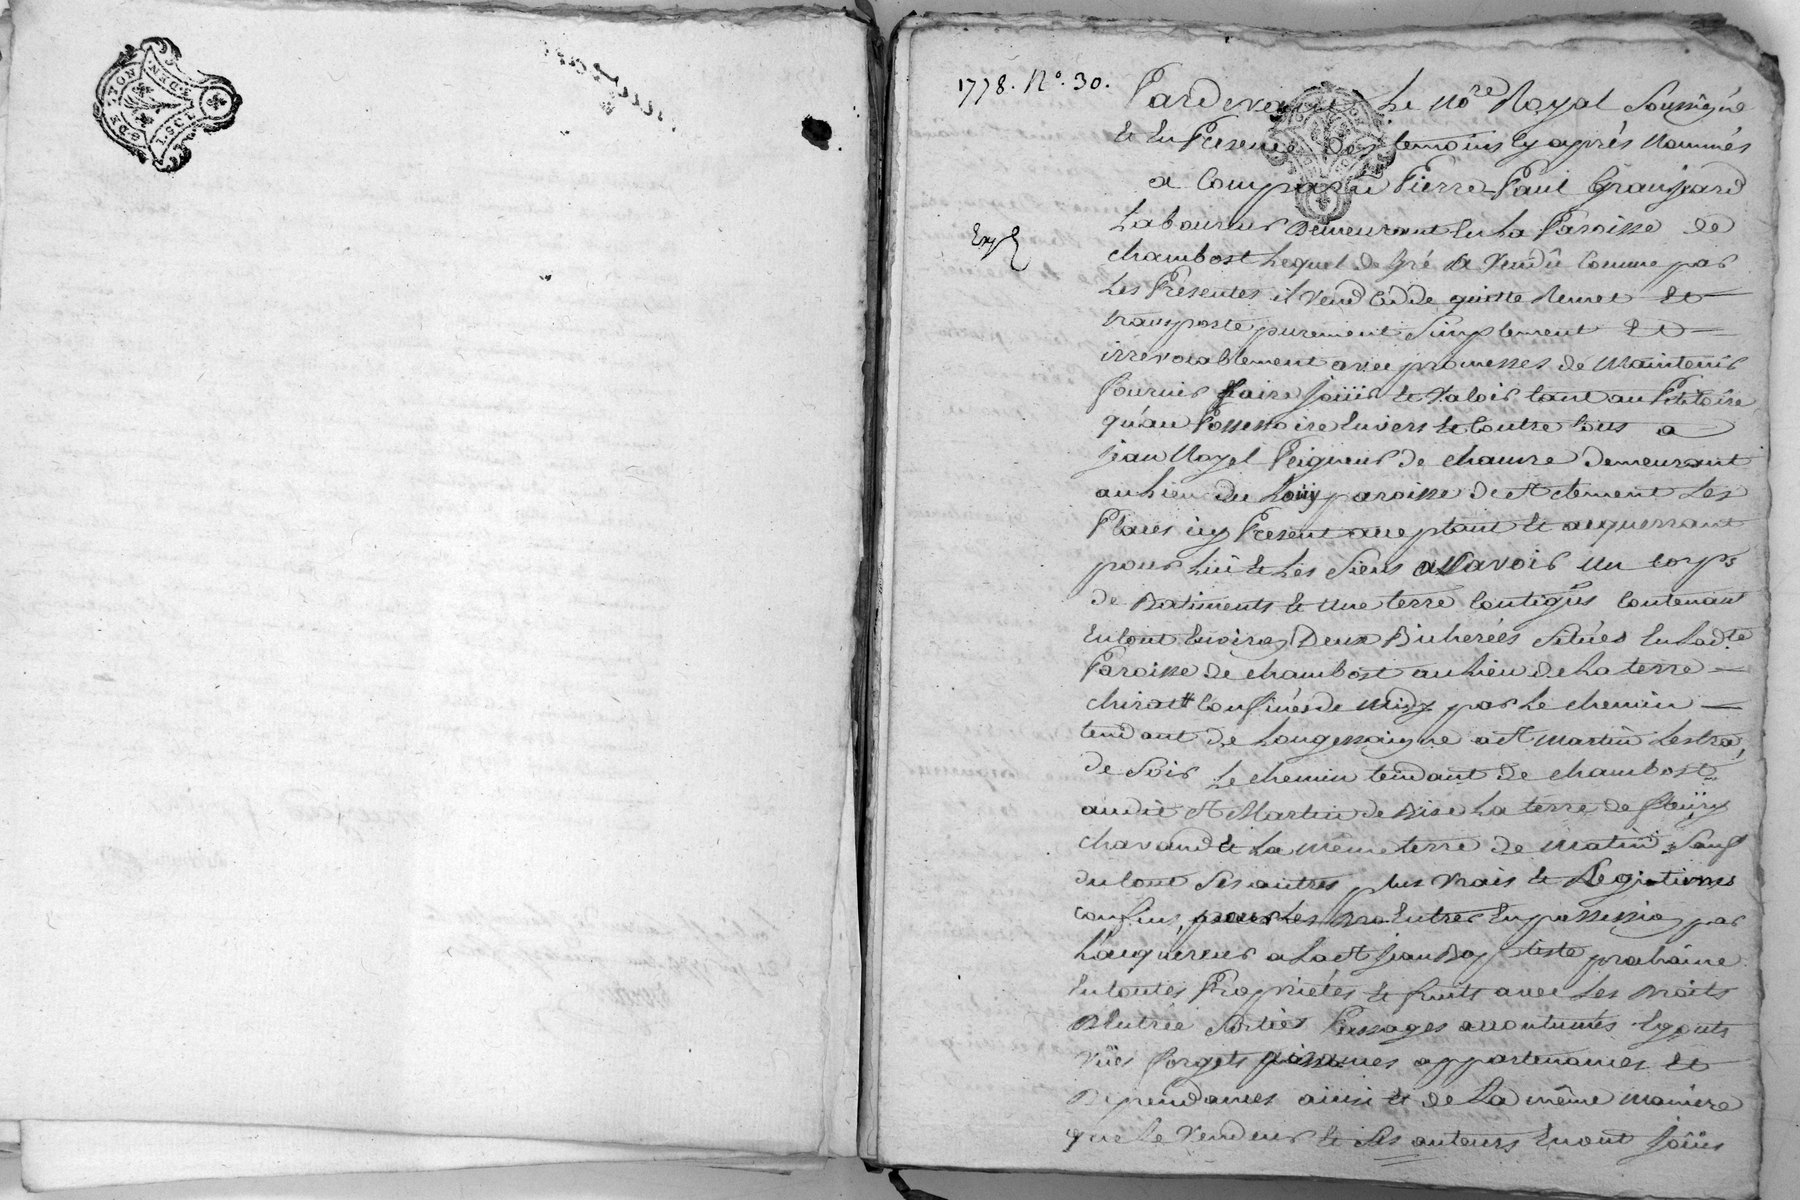 1778. N.° 30.
Pardevant Le No.re Royal Soussigné
Et En Presence Des temoins Cy après Nommés
a Comparu Pierre-Paul Granjard
Laboureur Demeurant En La Paroisse de
Exp.é
chambost Lequel de Gré a Vendû Comme par
Les Presentes il Vend Cédde quitte Remet Et
transporte purement Simplement Et
irrevocablement avec promesses de Maintenir
fournir faire Joüir Et Valoir tant au Petitoire
qu'au Possessoire Envers Et Contre tous a
Jean Noyel Peigneur de chanvre demeurant
au Lieu du paroisse de St Clement Les
Places icy Present acceptant Et acquerrant
pour Lui Et Les Siens aSavoir un corps
de Batiments Et Une terre Contigüs Contenant
En tout Environ Deux Bicherées Situés En Lad.te
Paroisse de chambost au Lieu de La terre
chiratt Confinés de Midy par Le chemin
tendant de Longessaigne a St Martin Lestra,
de Soir Le chemin tendant de chambost
audit St Martin de Bise La terre de fleüry
chavand Et La même terre de Matin; Sauf
du tout Ses autres plus Vrais Et Legitimes
confins, pour Les Entrer En possession par
L'acquereur a La St Jean Baptiste prochaine
En toutes Proprietés Et fruits avec Les Droits
D'Entrée Sorties Passages accoutumés Egouts
Vües forgets aisances appartenances Et
Dependances ainsi Et de La même maniere
que Le Vendeur Et Ses auteurs En ont Joüis